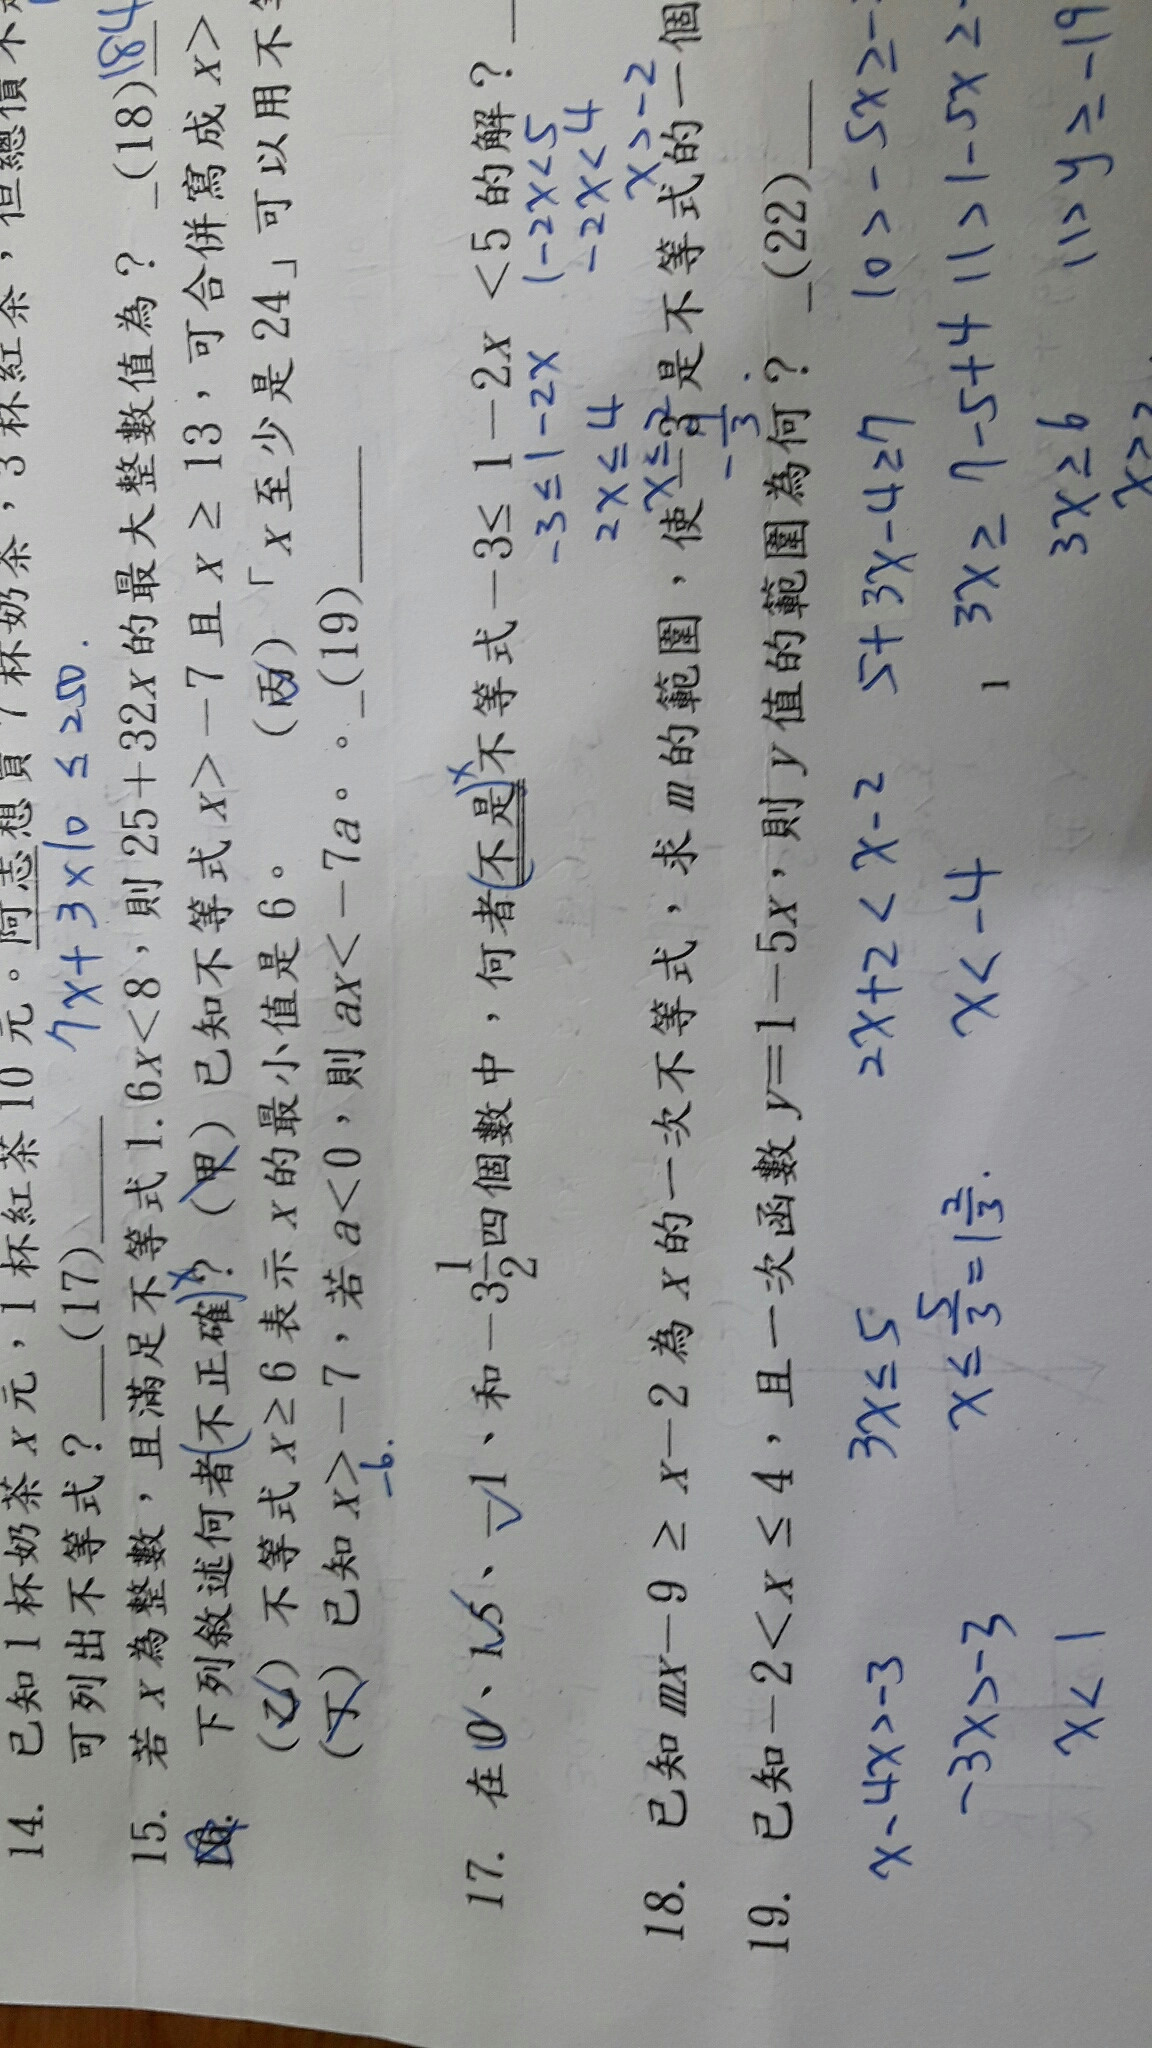 14. 已知1杯奶茶 x 元，1杯紅茶10元。阿志想買7杯奶茶，3杯紅茶，但總價不
可列出不等式？ (17)
7x+3×10 ≤ 250.
15. 若 x 為整數，且滿足不等式1.6x<8，則25+32x的最大整數值為？ (18) 184
16. 下列敘述何者(不正確)？(甲) 已知不等式 x>-7 且 x≥13，可合併寫成 x>
(乙) 不等式 x≥6 表示 x 的最小值是6。 (丙)「x 至少是24」可以用不
(丁) 已知 x>-7，若 a<0，則 ax<-7a。。(19)
-6.
17. 在0、1.5、-1、和-3 1/2 四個數中，何者(不是)不等式-3≤ 1-2x <5的解？
-3≤1-2x 1-2x<5
2x≤4 -2x<4
x≤2 x>-2
18. 已知 mx-9 ≥ x-2 為 x 的一次不等式，求 m 的範圍，使-3是不等式的一個
-4/3
19. 已知-2<x≤4，且一次函數 y=1-5x，則 y 值的範圍為何？ (22)
x-4x>-3 3x≤5 2x+2<x-2 5+3x-4≥7 10>-5x≥-
-3x>-3 x≤5/3=1 2/3. x<-4 3x≥7-5+4 11>1-5x≥-
x<1 3x≥6 11>y≥-19
1